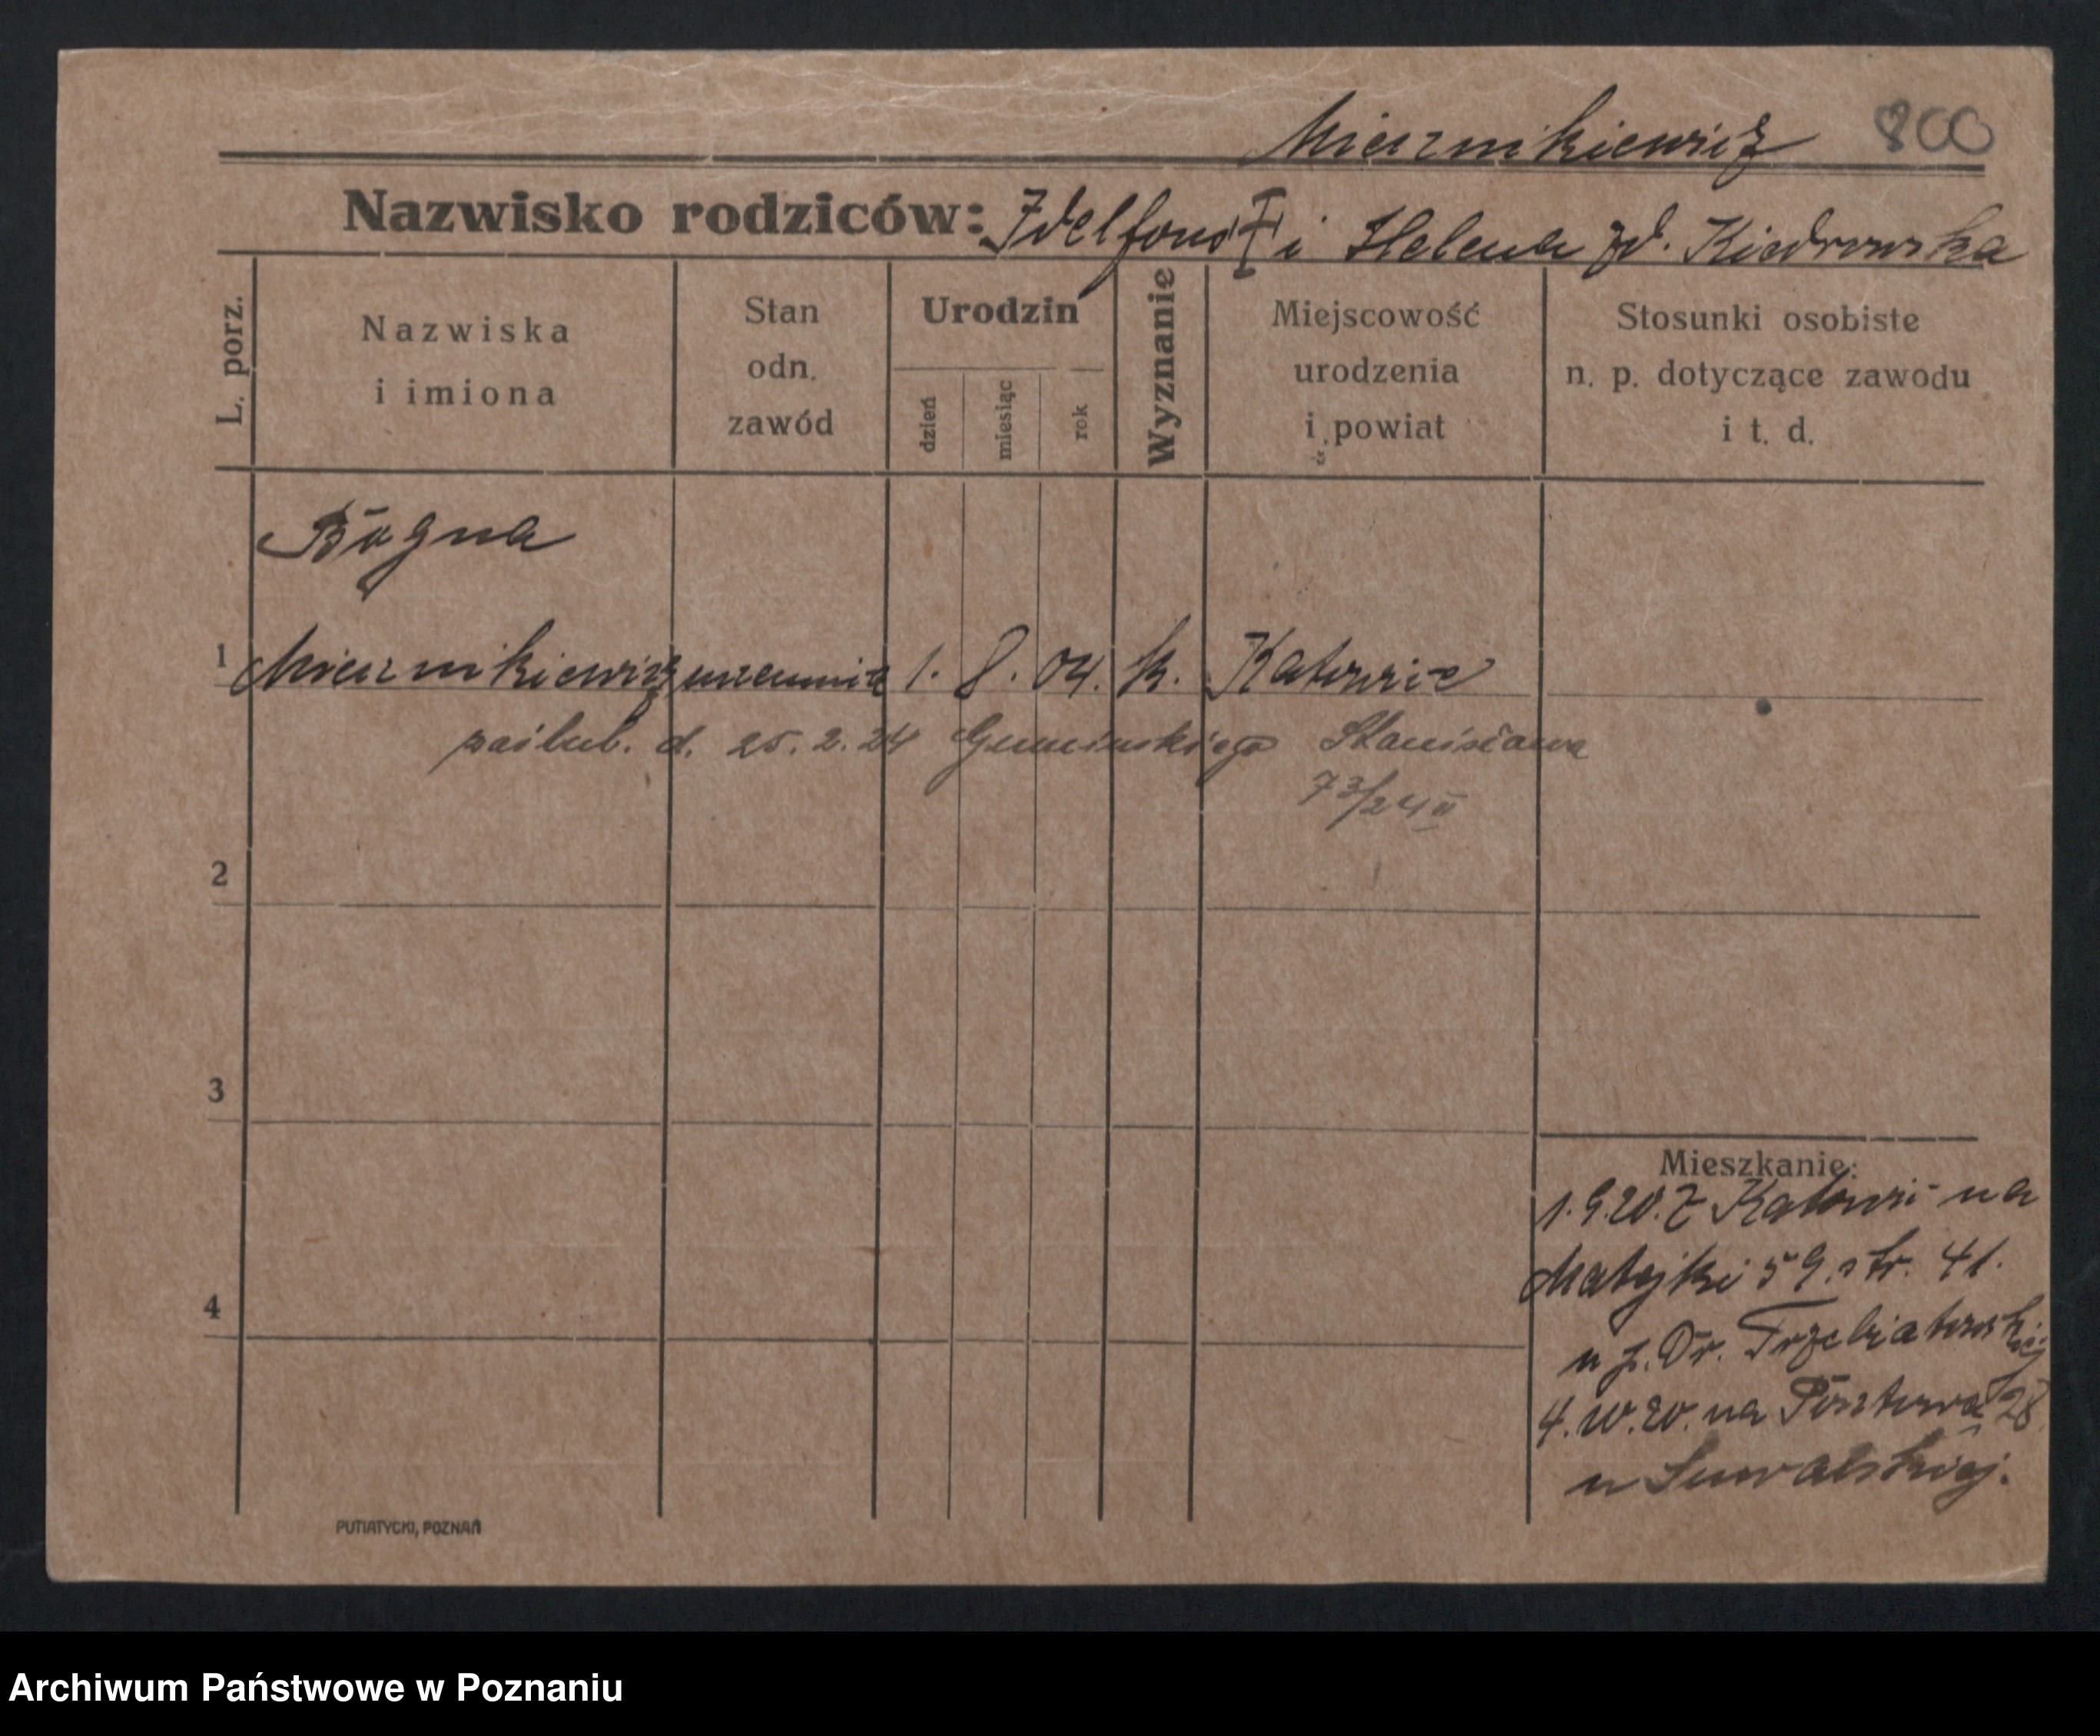 Miecznikiewicz 800
Nazwisko rodziców: Idelfons † i Helena zd. Kiedrowska
L. porz.
Nazwiska
i imiona
Stan
odn.
zawód
Urodzin
dzień
miesiąc
rok
Wyznanie
Miejscowość
urodzenia
i powiat
Stosunki osobiste
n. p. dotyczące zawodu
i t. d.
Bogna
1 Miecznikiewicz uczennica 1. 8. 04. k. Katowic
zaślub. d. 25.2.24 Gumińskiego Stanisława
73/24 II
2
3
4
Mieszkanie:
1.9.20. z Katowic na
Matejki 59. str. 41.
u p. Dr. Trzebiatowskiej
4.10.20. na Pocztowa 28
u Suwalskiej.
PUTIATYCKI, POZNAŃ
Archiwum Państwowe w Poznaniu